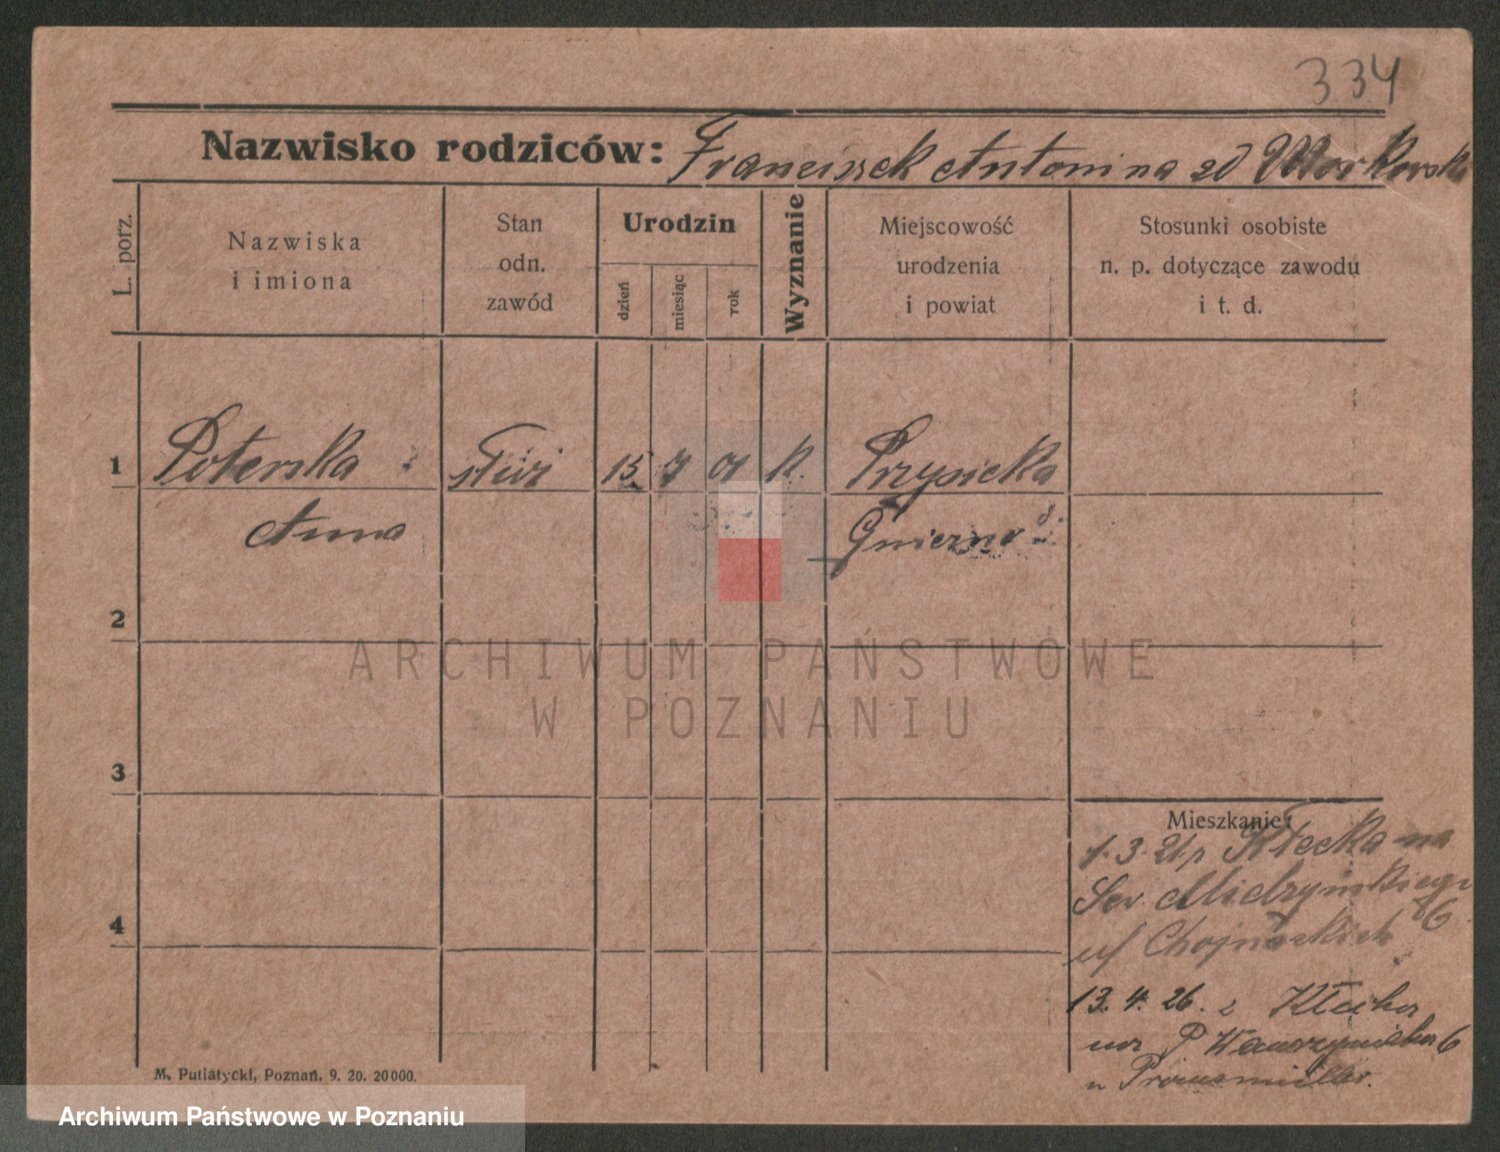 334
Nazwisko rodziców: Franciszek Antonina zd
L. porz.
Nazwiska i imiona
Stan odn. zawód
Urodzin
dzień
miesiąc
rok
Wyznanie
Miejscowość urodzenia i powiat
Stosunki osobiste n. p. dotyczące zawodu i t. d.
1 Poterska służ 15 7 01 k. Przysieka
Anna Gniezno
2
ARCHIWUM PAŃSTWOWE
W POZNANIU
3
Mieszkanie:
1.3.21 Kłecka na
Sew Mielżyńskiego 6
u/ Chojnackich
4
13.4.26. z Kłecka
na P Wawrzyniaka 6
u
M. Putiatycki, Poznań. 9. 20. 20000.
Archiwum Państwowe w Poznaniu